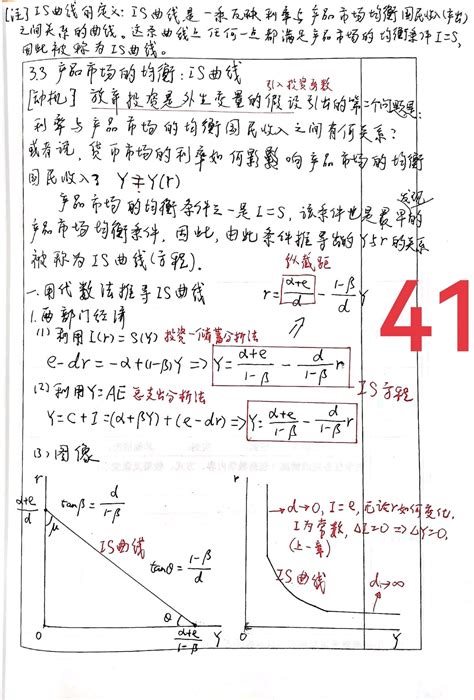 [注] IS曲线的定义: IS曲线是一条反映利率与产品市场均衡国民收入(产出)
之间关系的曲线。这条曲线上任何一点都满足产品市场的均衡条件I=S,
因此被称为IS曲线。
3.3 产品市场的均衡: IS曲线
引入投资函数
[动机] 放弃投资是外生变量的假设引出的第二个问题是:
利率与产品市场的均衡国民收入之间有何关系?
或者说, 货币市场的利率如何影响产品市场的均衡
国民收入? Y≠Y(r)
发现
产品市场的均衡条件之一是I=S, 该条件也是最早的
产品市场均衡条件, 因此, 由此条件推导出的Y与r的关系
被称为IS曲线(方程).
纵截距
一.用代数法推导IS曲线
r = (α+e)/d - (1-β)/d Y
1.两部门经济
41
(1) 利用I(r)=S(Y) 投资—储蓄分析法
e-dr=-α+(1-β)Y => Y = (α+e)/(1-β) - d/(1-β) r
IS方程
(2) 利用Y=AE 总支出分析法
Y=C+I=(α+βY)+(e-dr) => Y = (α+e)/(1-β) - d/(1-β) r
(3) 图像
r
(α+e)/d
μ
tanβ = d/(1-β)
IS曲线
tanθ = (1-β)/d
θ
0
(α+e)/(1-β)
Y
r
d→0, I=e, 无论r如何变化,
I为常数, ΔI=0 => ΔY=0.
(上一章)
IS曲线
d→∞
0
Y